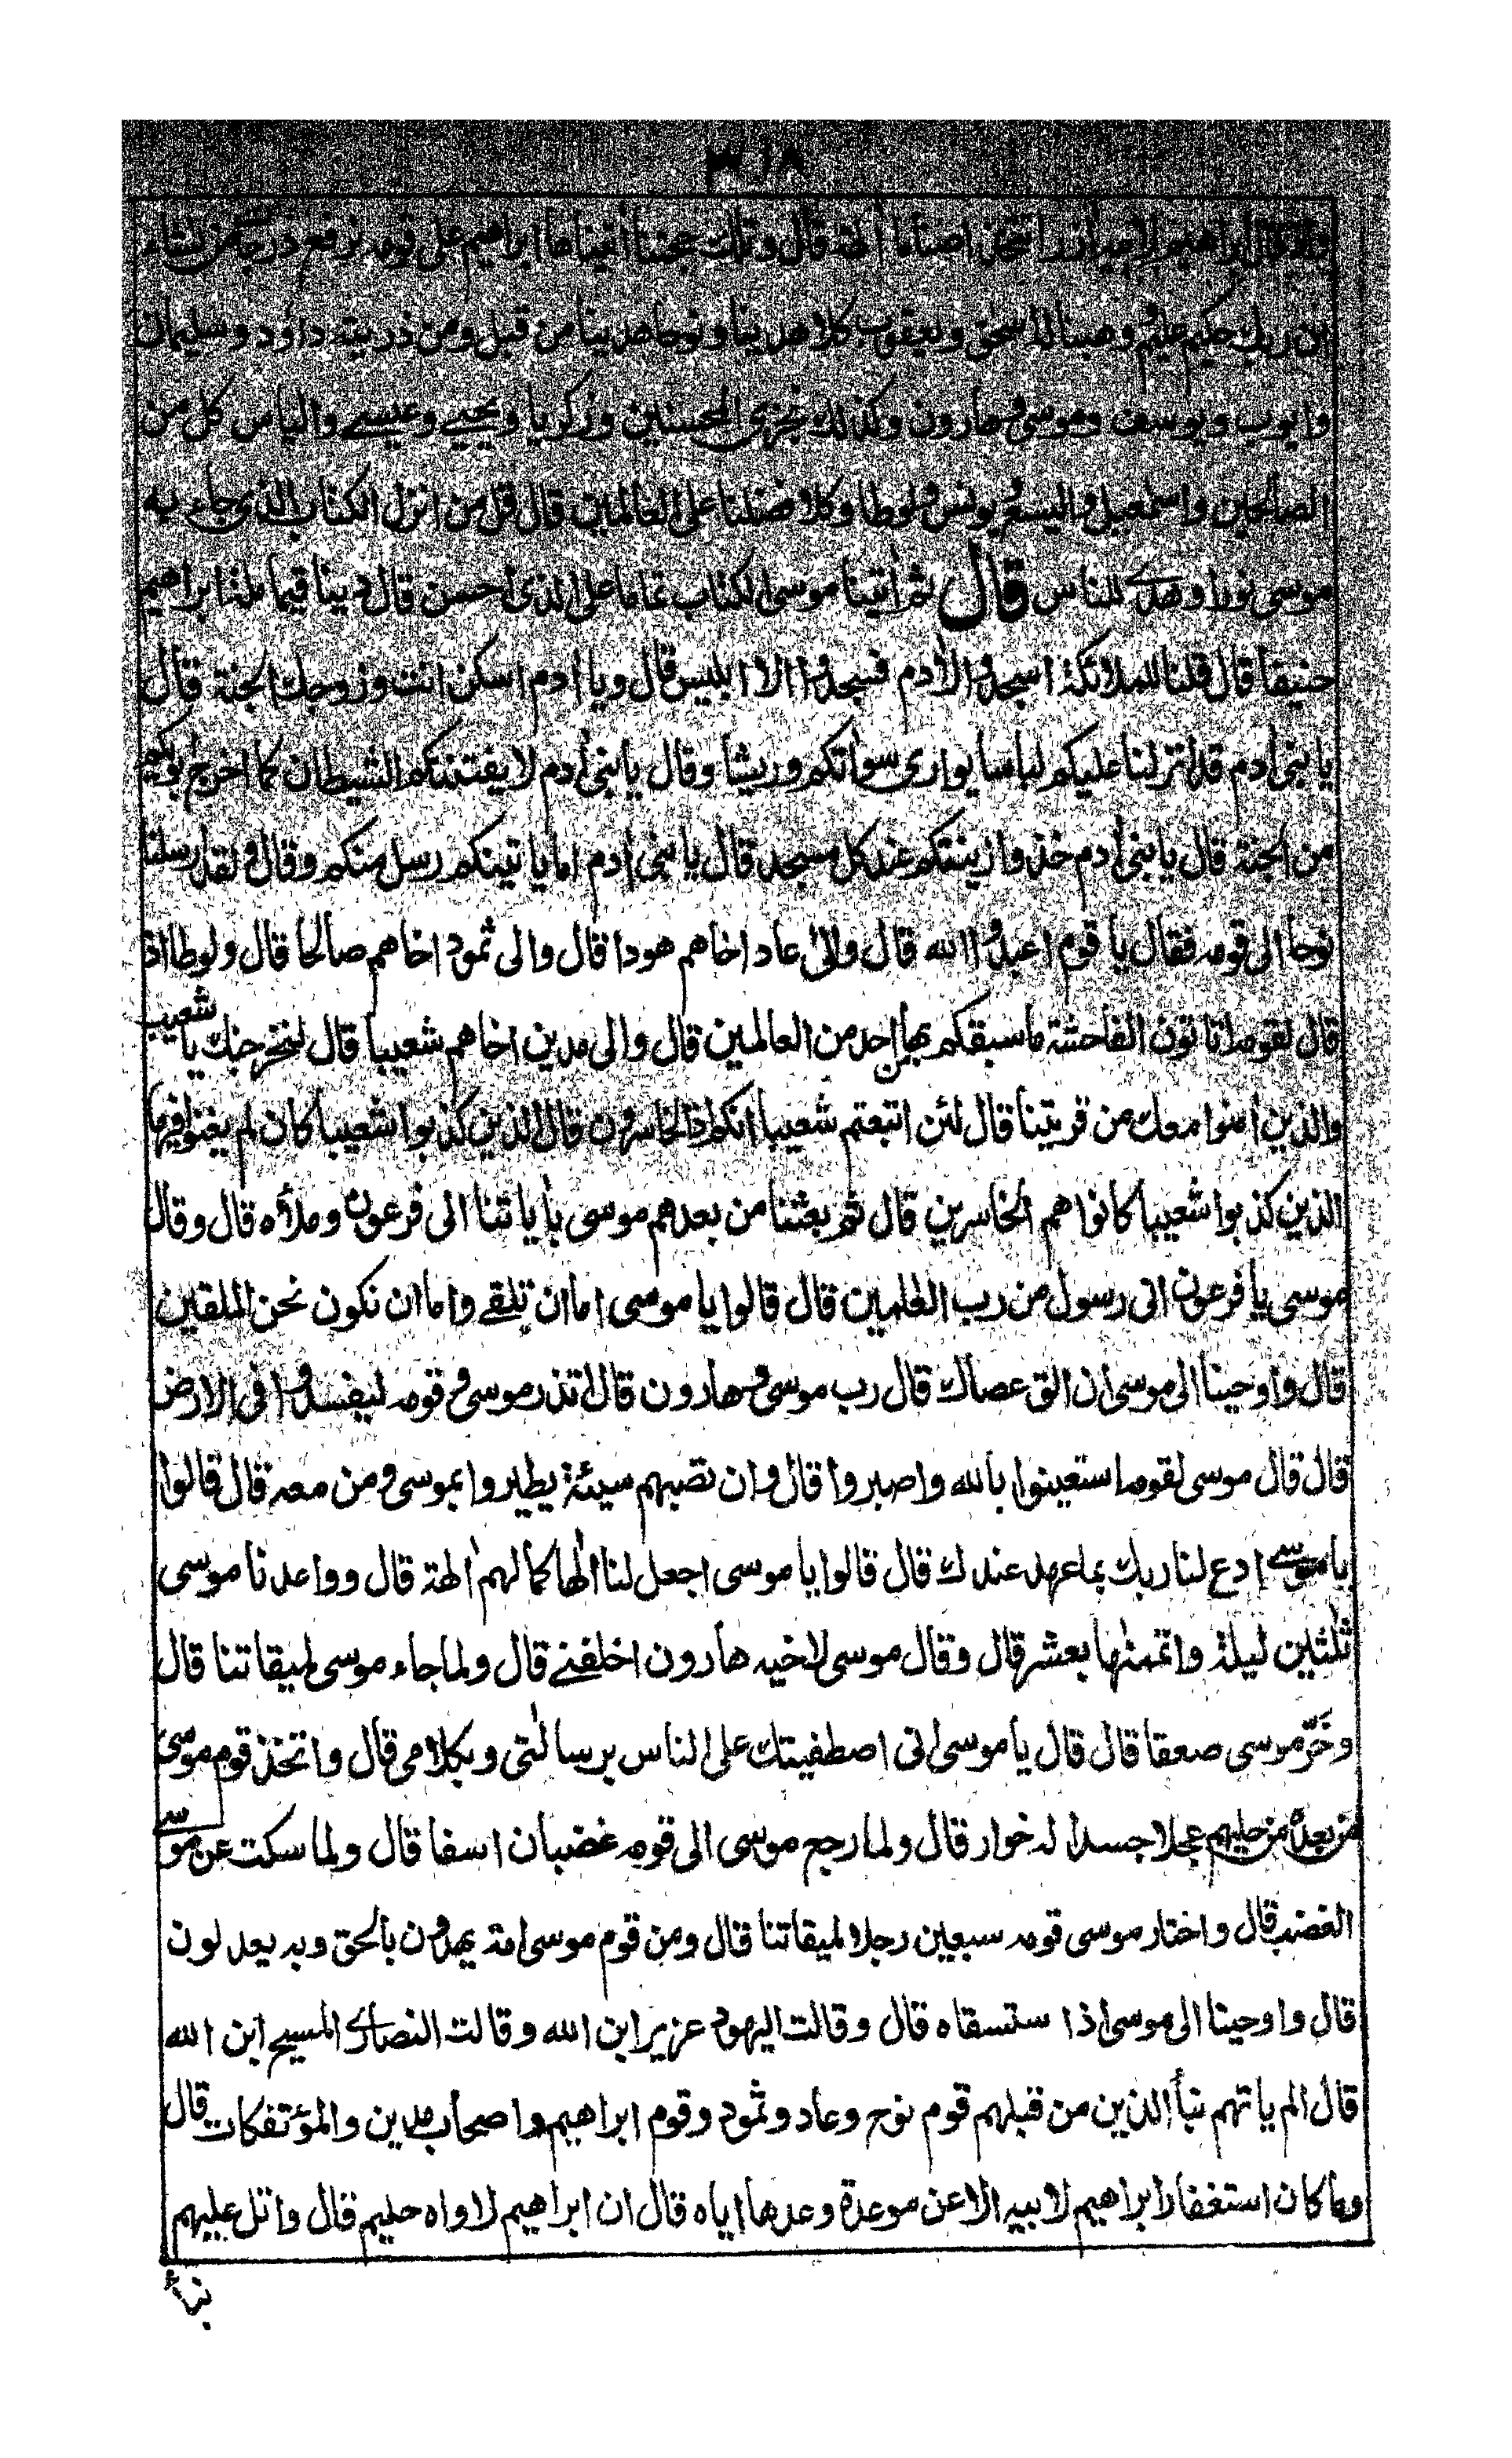 ٣١٨
واذ قال ابراهيم لابيه ازر اتتخذ اصناما الهة قال وتلك حجتنا اتيناها ابراهيم على قومه نرفع درجات من نشاء
ان ربك حكيم عليم ووهبنا له اسحق ويعقوب كلا هدينا ونوحا هدينا من قبل ومن ذريته داود وسليمان
وايوب ويوسف وموسى وهارون وكذلك نجزي المحسنين وزكريا ويحيے وعيسے والياس كل من
الصالحين واسمعيل واليسع ويونس ولوطا وكلا فضلنا على العالمين قال قل من انزل الكتاب الذي جاء به
موسى نورا وهدے للناس قال ثم اتينا موسى الكتاب تماما على الذي احسن قال دينا قيما ملة ابراهيم
حنيفا قال قلنا للملائكة اسجدوا لادم فسجدوا الا ابليس قال ويا ادم اسكن انت وزوجك الجنة قال
يا بني ادم قد انزلنا عليكم لباسا يواري سواتكم وريشا وقال يا بني ادم لا يفتننكم الشيطان كما اخرج ابويكم
من الجنة قال يا بني ادم خذوا زينتكم عند كل مسجد قال يا بني ادم اما ياتينكم رسل منكم وقال ولقد ارسلنا
نوحا الى قومه فقال يا قوم اعبدوا الله قال والى عاد اخاهم هودا قال والى ثمود اخاهم صالحا قال ولوطا اذ
قال لقومه اتاتون الفاحشة ما سبقكم بها من احد من العالمين قال والى مدين اخاهم شعيبا قال لنخرجنك يا شعيب
والذين امنوا معك من قريتنا قال لئن اتبعتم شعيبا انكم اذا لخاسرون قال الذين كذبوا شعيبا كان لم يغنوا فيها
الذين كذبوا شعيبا كانوا هم الخاسرين قال ثم بعثنا من بعدهم موسى باياتنا الى فرعون وملأه قال وقال
موسى يا فرعون انى رسول من رب العلمين قال قالوا يا موسى اما ان تلقے واما ان نكون نحن الملقين
قال واوحينا الى موسى ان الق عصاك قال رب موسى وهارون قال اتذر موسى وقومه ليفسدوا فى الارض
قال قال موسى لقومه استعينوا بالله واصبروا قال وان تصبهم سيئة يطيروا بموسى ومن معه قال قالوا
يا موسے ادع لنا ربك بما عهد عندك قال قالوا يا موسى اجعل لنا الٰها كما لهم اٰلهة قال وواعدنا موسى
ثلثين ليلة واتممنٰها بعشر قال وقال موسى لاخيه هارون اخلفنے قال ولما جاء موسى لميقاتنا قال
وخَرّ موسى صعقا قال قال يا موسى انى اصطفيتك على الناس برسالٰتى وبكلامى قال واتخذ قوم موسى
من بعده من حليهم عجلا جسدا له خوار قال ولما رجع موسى الى قومه غضبان اسفا قال ولما سكت عن موسے
الغضب قال واختار موسى قومه سبعين رجلا لميقاتنا قال ومن قوم موسى امة يهدون بالحق وبه يعدلون
قال واوحينا الى موسى اذا ستسقاه قال وقالت اليهود عزير ابن الله وقالت النصارے المسيح ابن الله
قال الم ياتهم نبأ الذين من قبلهم قوم نوح وعاد وثمود وقوم ابراهيم واصحاب مدين والمؤتفكات قال
وما كان استغفار ابراهيم لابيه الا عن موعدة وعدها اياه قال ان ابراهيم لاواه حليم قال واتل عليهم
نبأ